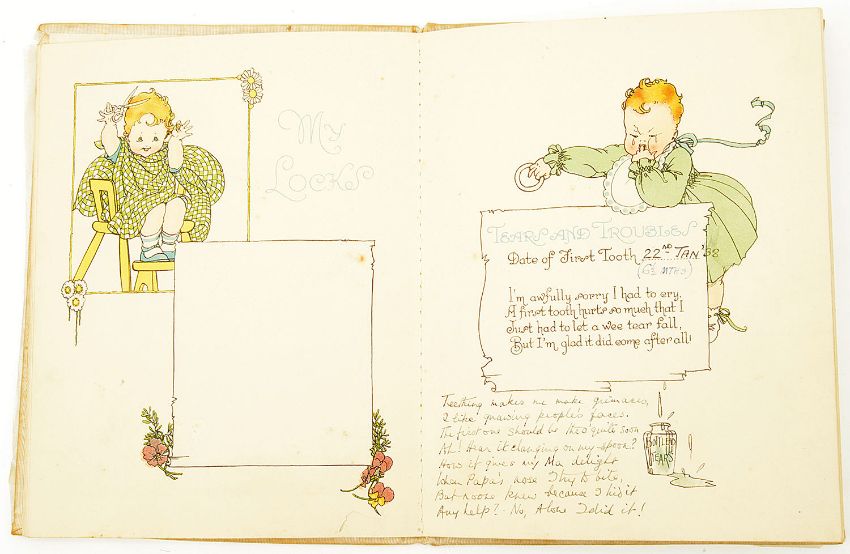 My
Locks
Tears and Troubles
Date of First Tooth 22ND JAN '38
(6½ MTHS)
I'm awfully sorry I had to cry,
A first tooth hurts so much that I
Just had to let a wee tear fall,
But I'm glad it did come after all!
Teething makes me make grimaces,
I like gnawing people's faces.
The first one should be thro' quite soon
Ah! Hear it clanging on my spoon?
How it gives my Ma delight
When Papa's nose I try to bite,
But no one knew because I hid it
Any help? - No, Alone I did it!
BOTTLED
TEARS